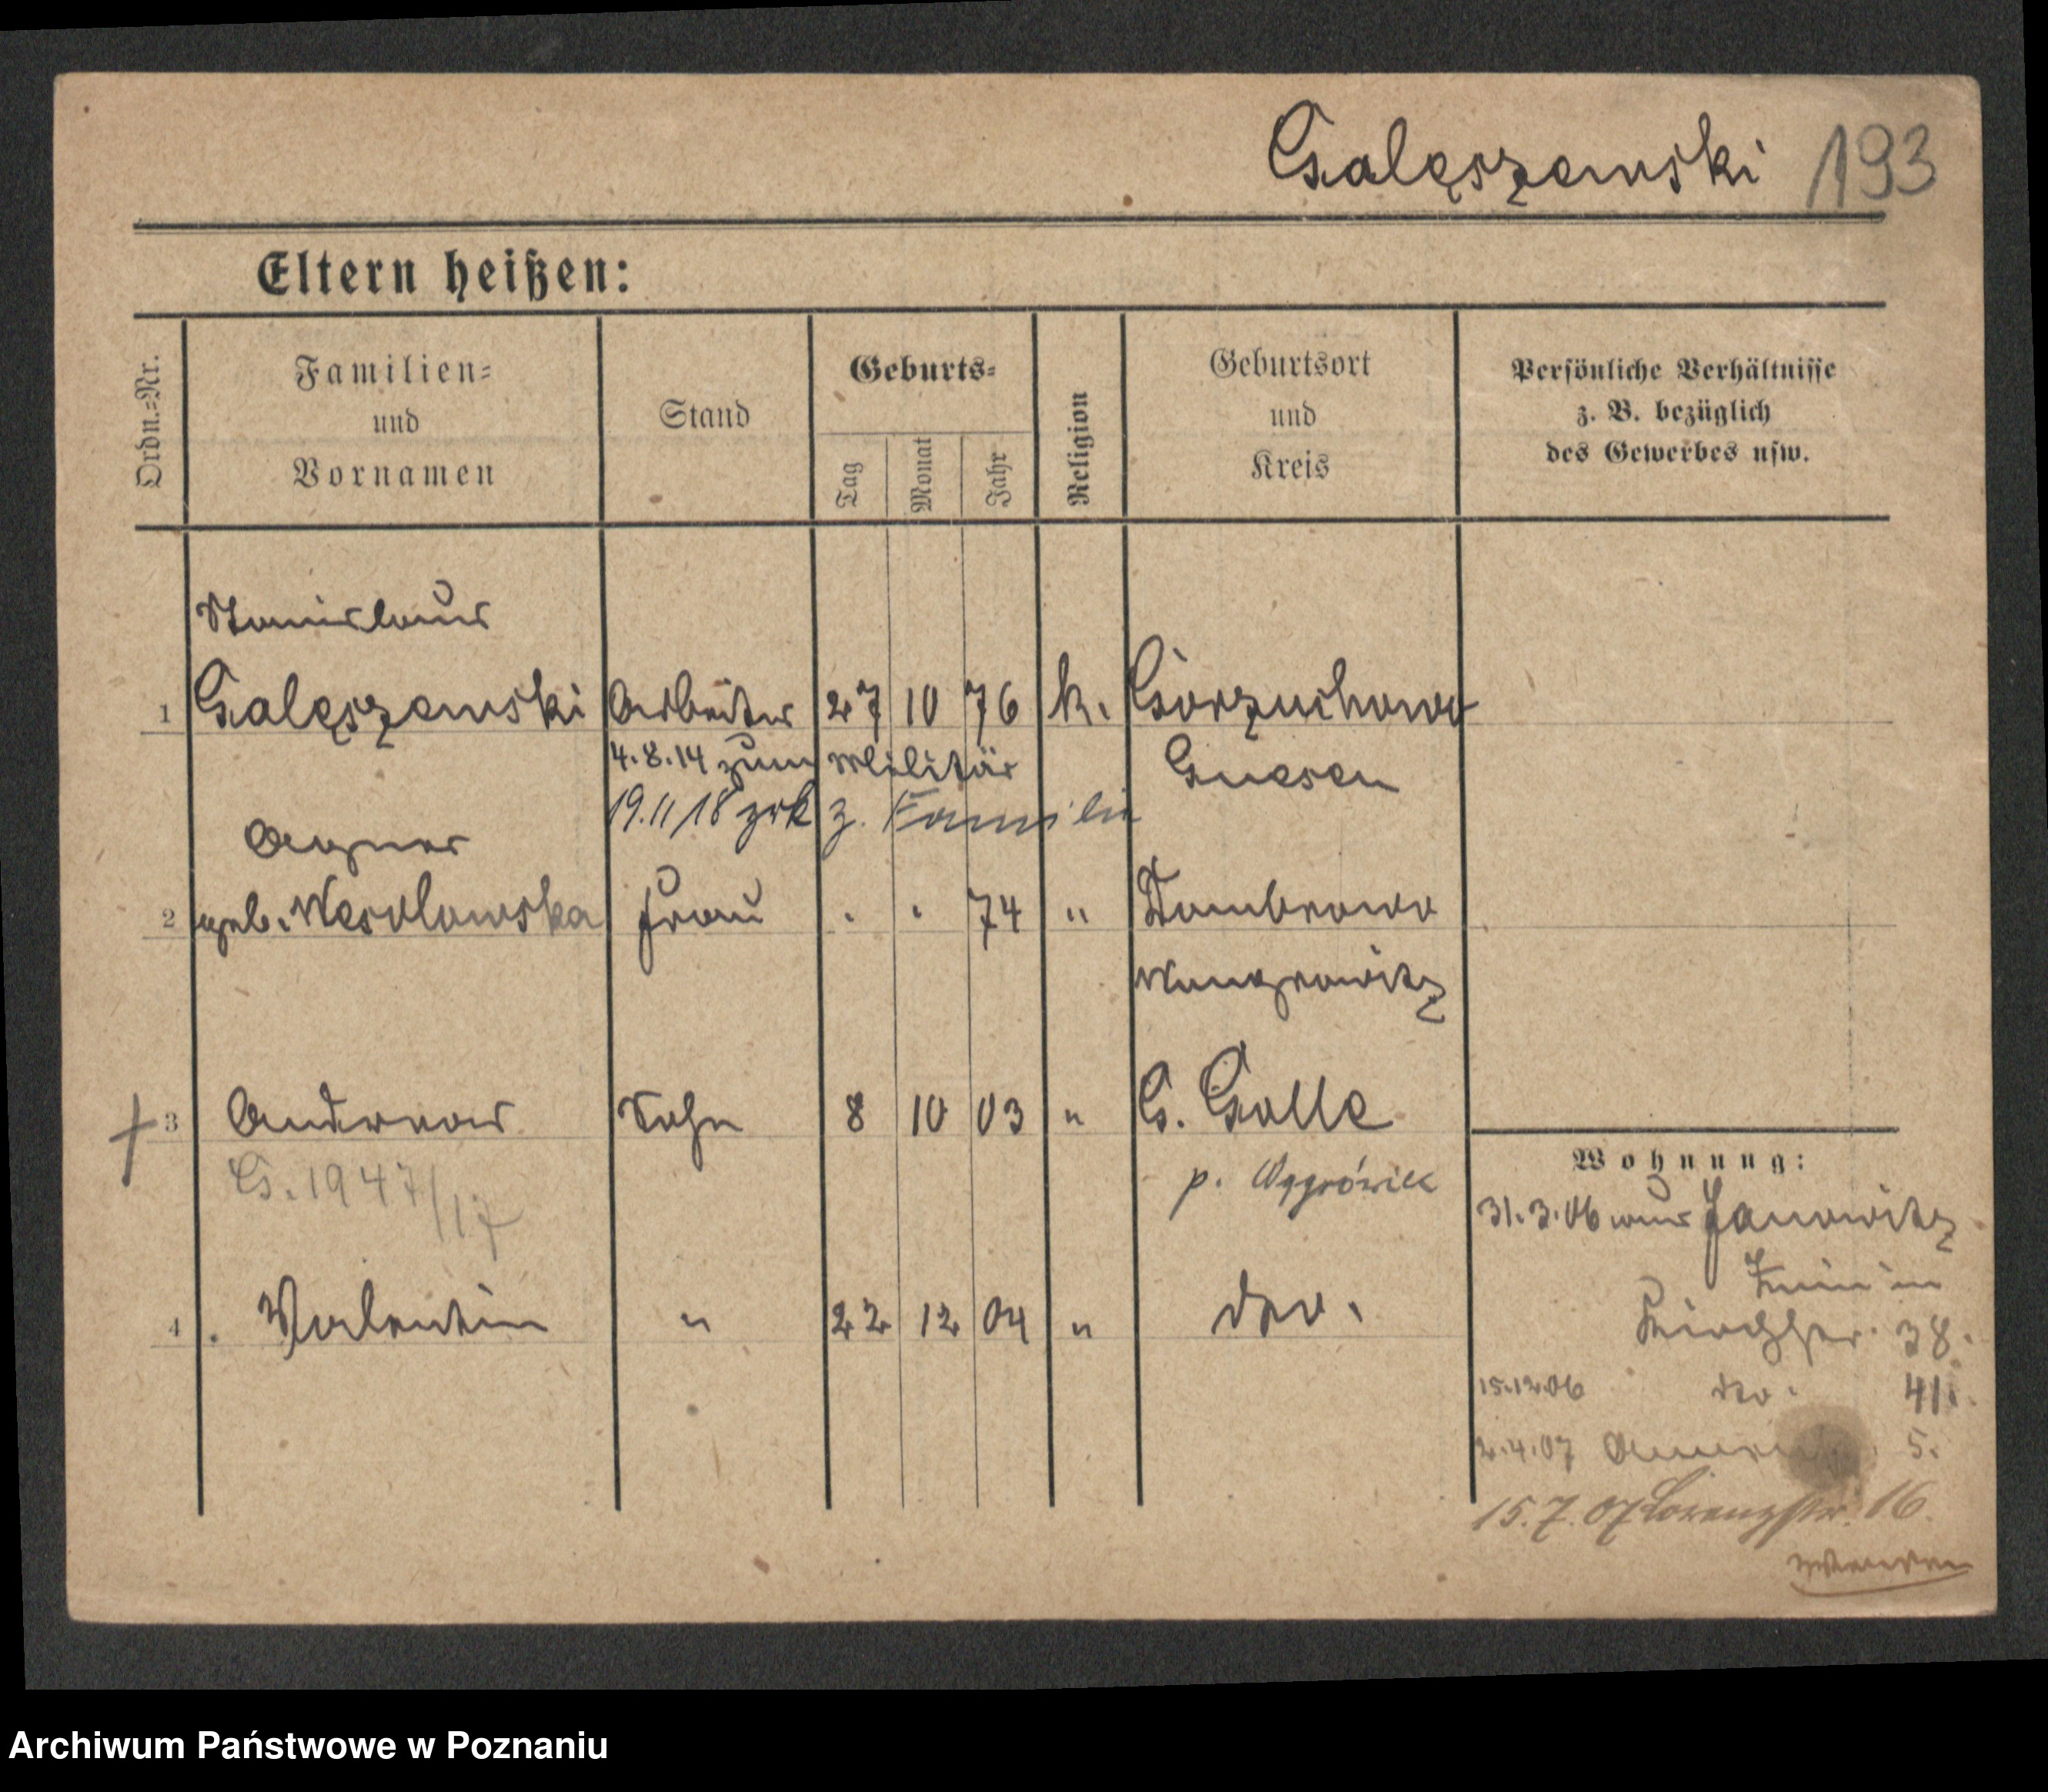 Galęszewski 193
Eltern heißen:
Ordn.-Nr.
Familien-
und
Vornamen
Stand
Geburts-
Tag
Monat
Jahr
Religion
Geburtsort
und
Kreis
Persönliche Verhältnisse
z. B. bezüglich
des Gewerbes usw.
Stanislaus
1 Galęszewski Arbeiter 27 10 76 k. Gorzuchowo
4.8.14 zum Militär Gnesen
19.11 18 zrk z. Familie
Agnes
2 geb. Wesolowska Frau . . 74 " Dombrowo
Wongrowitz
3 Andreas Sohn 8 10 03 " G. Golle
G. 1947/17 p. Wągrówiec
4 . Valentin " 22 12 04 " dto.
Wohnung:
31.3.06 aus Janowitz
Znin in
38.
15.12.06 dto. 41.
2.4.07 5.
15.7.07 Lorenzstr. 16.
wenden
Archiwum Państwowe w Poznaniu